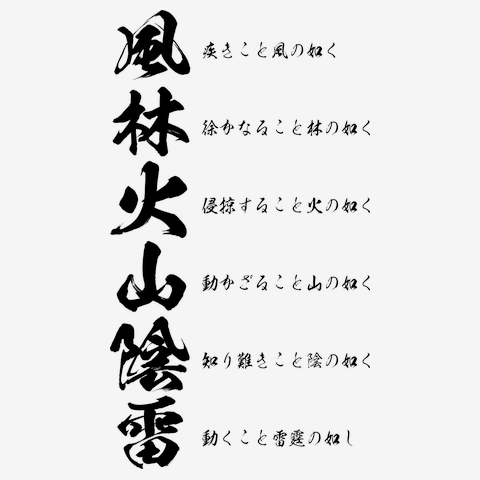 風 疾きこと風の如く
林 徐かなること林の如く
火 侵掠すること火の如く
山 動かざること山の如く
陰 知り難きこと陰の如く
雷 動くこと雷霆の如し